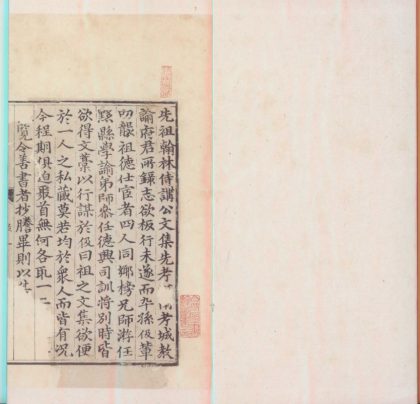 先祖翰林侍講公文集先考 考城教
諭府君所錄志欲板行未遂而卒孫伋輩
叨襲祖德仕宦者四人同鄉榜兄師游任
縣學諭弟師 任德興司訓將別時皆
欲得文藁以行謀於伋曰祖之文集欲便
於一人之私藏莫若均於衆人而皆有况
今程期俱迫聚首無何各取一
覽令善書者抄謄畢則以